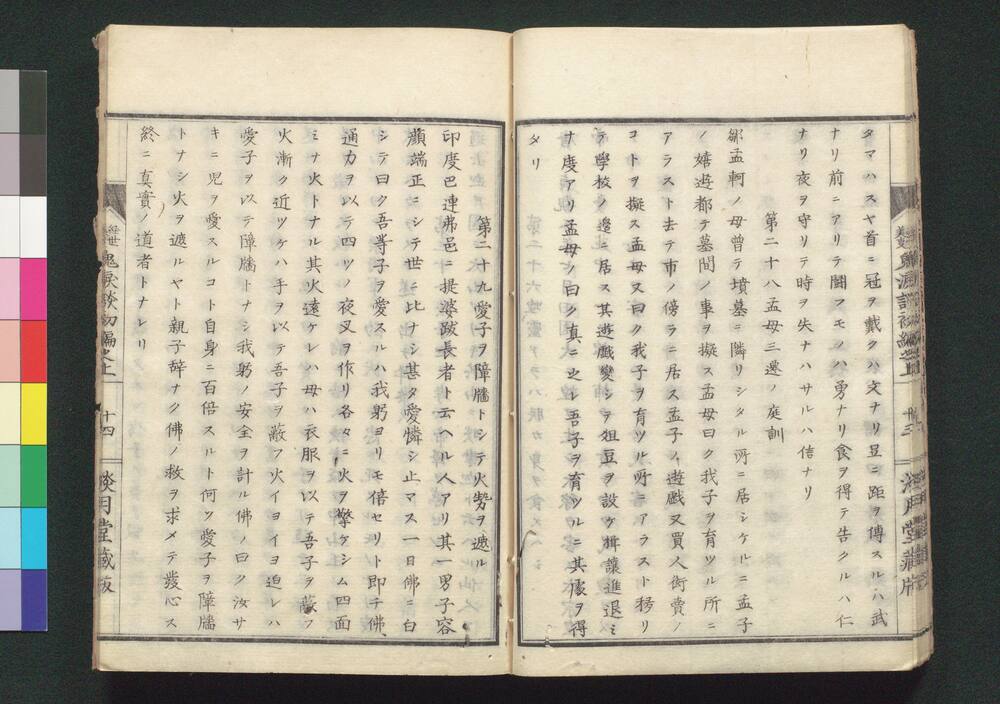 タマハスヤ首ニ冠ヲ戴クハ文ナリ足ニ距ヲ傅スルハ武
ナリ前ニアリテ闘フモノハ勇ナリ食ヲ得テ告クルハ仁
ナリ夜ヲ守リテ時ヲ失ナハサルハ信ナリ
第二十八孟母三遷ノ庭訓
鄒孟軻ノ母曾テ墳墓ニ隣リシタル所ニ居シケルニ孟子
ノ嬉遊都テ墓間ノ事ヲ擬ス孟母曰ク我子ヲ育ツル所ニ
アラスト去テ市ノ傍ラニ居ス孟子ノ遊戯又買人衒賣ノ
コトヲ擬ス孟母又曰ク我子ヲ育ツル所ニアラスト移リ
テ學校ノ邊ニ居ス其遊戯變シテ俎豆ヲ設ケ揖讓進退ミ
ナ度アリ孟母ノ曰ク真ニ之レ吾子ヲ育ツルニ其處ヲ得
タリ
十三
第二十九愛子ヲ障牆トシテ火勢ヲ遮ル
印度巴連弗邑ニ提婆跋長者ト云ヘル人アリ其一男子容
顔端正ニシテ世ニ比ナシ甚タ愛憐シ止マス一日佛ニ白
シテ曰ク吾等子ヲ愛スルハ我躬ヨリモ倍セリト即チ佛
通力ヲ以テ四ツノ夜叉ヲ作リ各々ニ火ヲ擎ケシム四面
ミナ火トナル其火遠ケレハ母ハ衣服ヲ以テ吾子ヲ蔽フ
火漸ク近ツケハ手ヲ以テ吾子ヲ蔽フ火イヨイヨ迫レハ
愛子ヲ以テ障牆トナシ我躬ノ安全ヲ計ル佛ノ曰ク汝サ
キニ児ヲ愛スルコト自身ニ百倍スルト何ソ愛子ヲ障牆
トナシ火ヲ遮ルヤト親子辞ナク佛ノ救ヲ求メテ發心ス
終ニ真實ノ道者トナレリ
初編之上 十四